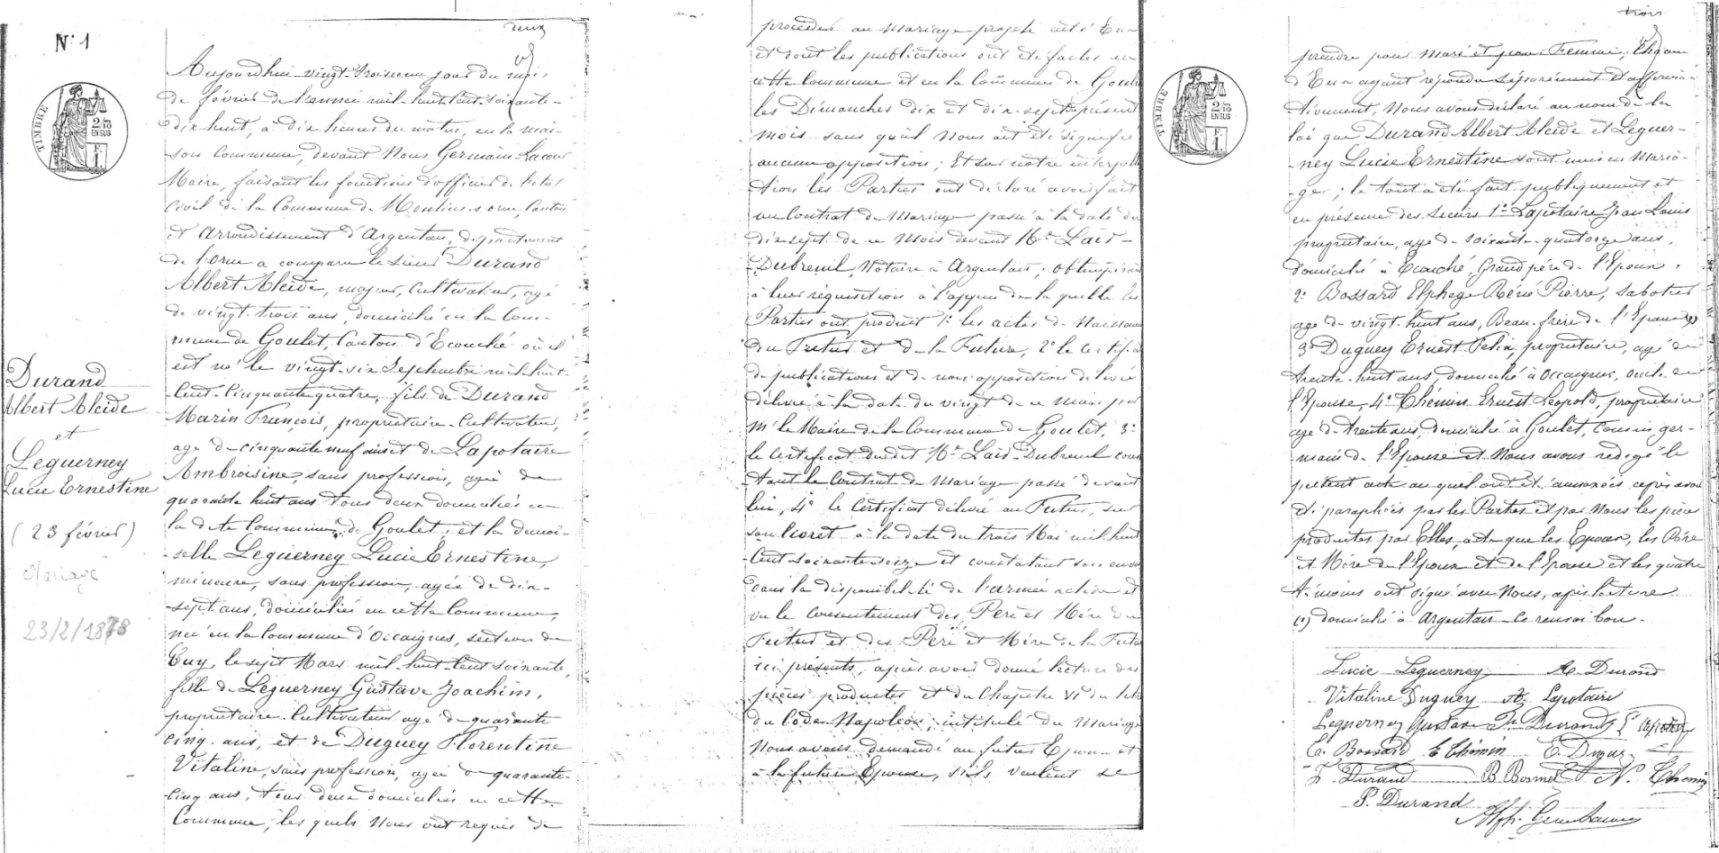 deux
N° 1
TIMBRE
2/10
EN SUS
F.
1.
Aujourd'hui vingt-troisieme jour du mois
de février de l'année mil-huit-cent-soixante-
dix huit, a dix heures du matin, en la mai-
son commune, devant Nous Germain Lacour
Maire, faisant les fonctions d'officier de l'etat
civil de la Commune de Moulins s orne, Canton
et Arrondissement d'Argentan, département
de l'orne a comparu le Sieur Durand
Albert Alcide, majeur, Cultivateur, agé
de vingt-trois ans, domicilié en la Com-
mune de Goulet, Canton d'Ecouché où il
est né le vingt-six Septembre mil-huit-
Cent-Cinquante quatre, fils de Durand
Marin François, propriétaire-Cultivateur,
age de cinquante neuf ans et de Lapotaire
Ambroisine, sans profession, agée de
quarante huit ans tous deux domiciliés en
la dite Commune de Goulet; et la demoi-
-selle Leguerney Lucie Ernestine,
mineure, sans profession, agée de dix-
-sept ans, domiciliée en cette Commune,
née en la Commune d'Occaignes, section de
Cuy, le sept Mars mil-huit-Cent soixante,
fille de Leguerney Gustave Joachim,
propriétaire Cultivateur agé de quarante
cinq ans, et de Duguey Florentine
Vitaline, sans profession, agée de quarante-
cinq ans, tous deux domiciliés en cette
Commune, les quels Nous ont requis de
Durand
Albert Alcide
et
Leguerney
Lucie Ernestine
(23 février)
Mariage
23/2/1878
procéder au Mariage projeté entr'Eux
et dont les publications ont été faites en
cette Commune et en la Commune de Goulet
les Dimanches dix et dix-sept présent
mois sans qu'il Nous ait été signifié
aucune opposition; Et sur notre interpella
tion les Parties ont déclaré avoir fait
un Contrat de Mariage passé à la date du
dix-sept de ce Mois devant Me Lair-
-Dubreuil, Notaire à Argentan; obtempérant
à leur réquisition à l'appui de la quelle les
Parties ont produit 1° les actes de Naissance
du Futur et de la Future, 2° le Certificat
de publications et de non opposition délivré
délivré à la date du vingt de ce mois par
Mr le Maire de la Commune de Goulet, 3°
le Certificat du dit Me Lair-Dubreuil cons
tant le Contrat de Mariage passé devant
lui, 4° le Certificat délivré au Futur, sur
son livret à la date du trois Mai mil huit
Cent-soixante-seize et constatant son envoi
dans la disponibilité de l'armée active et
vu le consentement des Père et Mère du
Futur et des Père et Mère de la Future
ici présents, après avoir donné lecture des
pièces produites et du Chapitre VI du titre
du Code Napoléon, intitulé du Mariage
Nous avons demandé au futur Epoux et
à la future Epouse, s'ils veulent se
trois
TIMBRE
2/10
EN SUS
F.
1.
prendre pour Mari et pour Femme, Chacun
d'Eux ayant répondu séparément et affirma-
tivement, Nous avons déclaré au nom de la
loi que Durand Albert Alcide et Leguer-
ney Lucie Ernestine sont unis en Maria-
ge; le tout a été fait publiquement et
en présence des Sieurs 1° Lapotaire Jean Louis
propriétaire, age de soixante-quatorze ans,
domicilié à Ecouché, Grand père de l'Epoux,
2° Bossard Elphege Réné Pierre, sabotier
age de vingt-huit ans, Beau-frère de l'Epoux (1)
3° Duguey Ernest Felix, propriétaire, agé de
trente-huit ans domicilié à Occaignes, oncle de
l'Epouse, 4° Chemin Ernest Léopold, propriétaire
age de trente ans, domicilié à Goulet, Cousin ger-
main de l'Epouse et Nous avons rédigé le
présent acte au quel ont été annexées après avoir
été paraphées par les Parties et par Nous les pièces
produites par Elles, acte que les Epoux, les Père
et Mère de l'Epoux et de l'Epouse et les quatre
témoins ont signé avec Nous, après lecture
(1) domicilié à Argentan le renvoi bon.
Lucie Leguerney A. Durand
Vitaline Duguey Lapotaire
Leguerney Gustave Durand Lapotaire
E. Bossard E Chemin E. Duguey
F. Durand B. N. Chemin
P. Durand